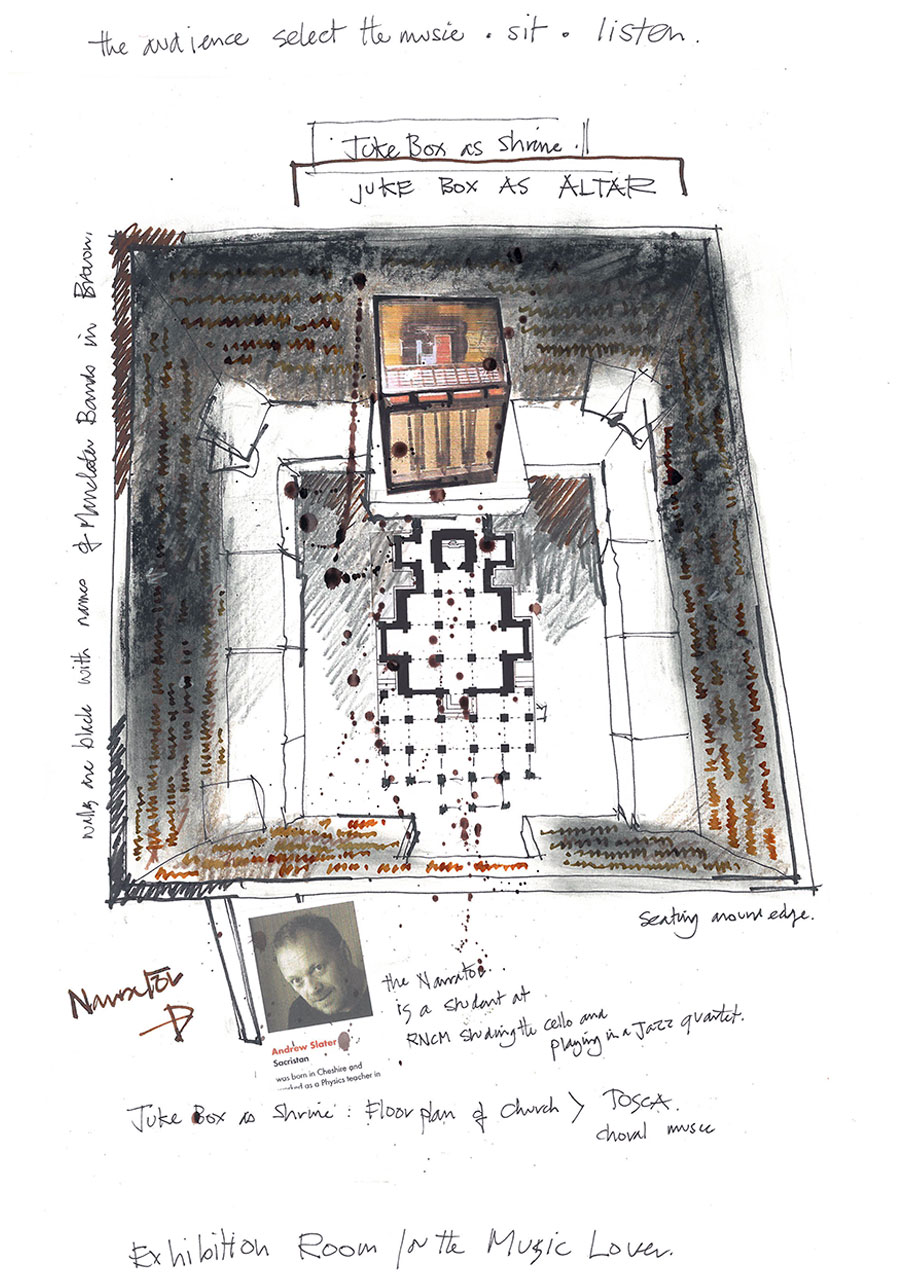 the audience select the music . sit . listen.
Juke Box as Shrine.
JUKE BOX AS ALTAR
walls are black with names of Manchester Bands in Brown.
seating around edge.
Narrator
the Narrator..
is a student at
RNCM studing the cello and
playing in a Jazz quartet.
Andrew Slater
Sacristan
was born in Cheshire and
worked as a Physics teacher in
Juke Box as Shrine : Floor plan of Church > TOSCA.
choral music
Exhibition Room for the Music Lover.